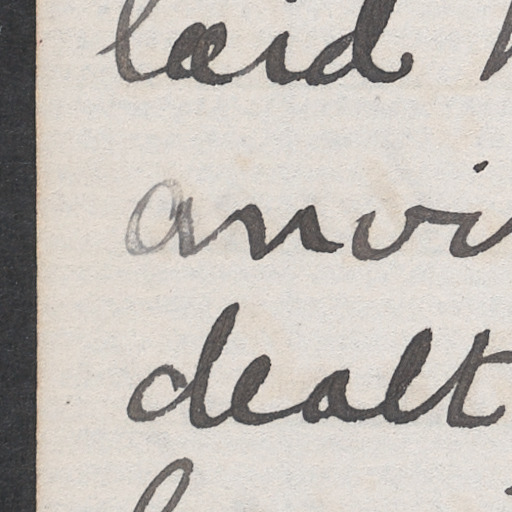 laid
anvi
dealt